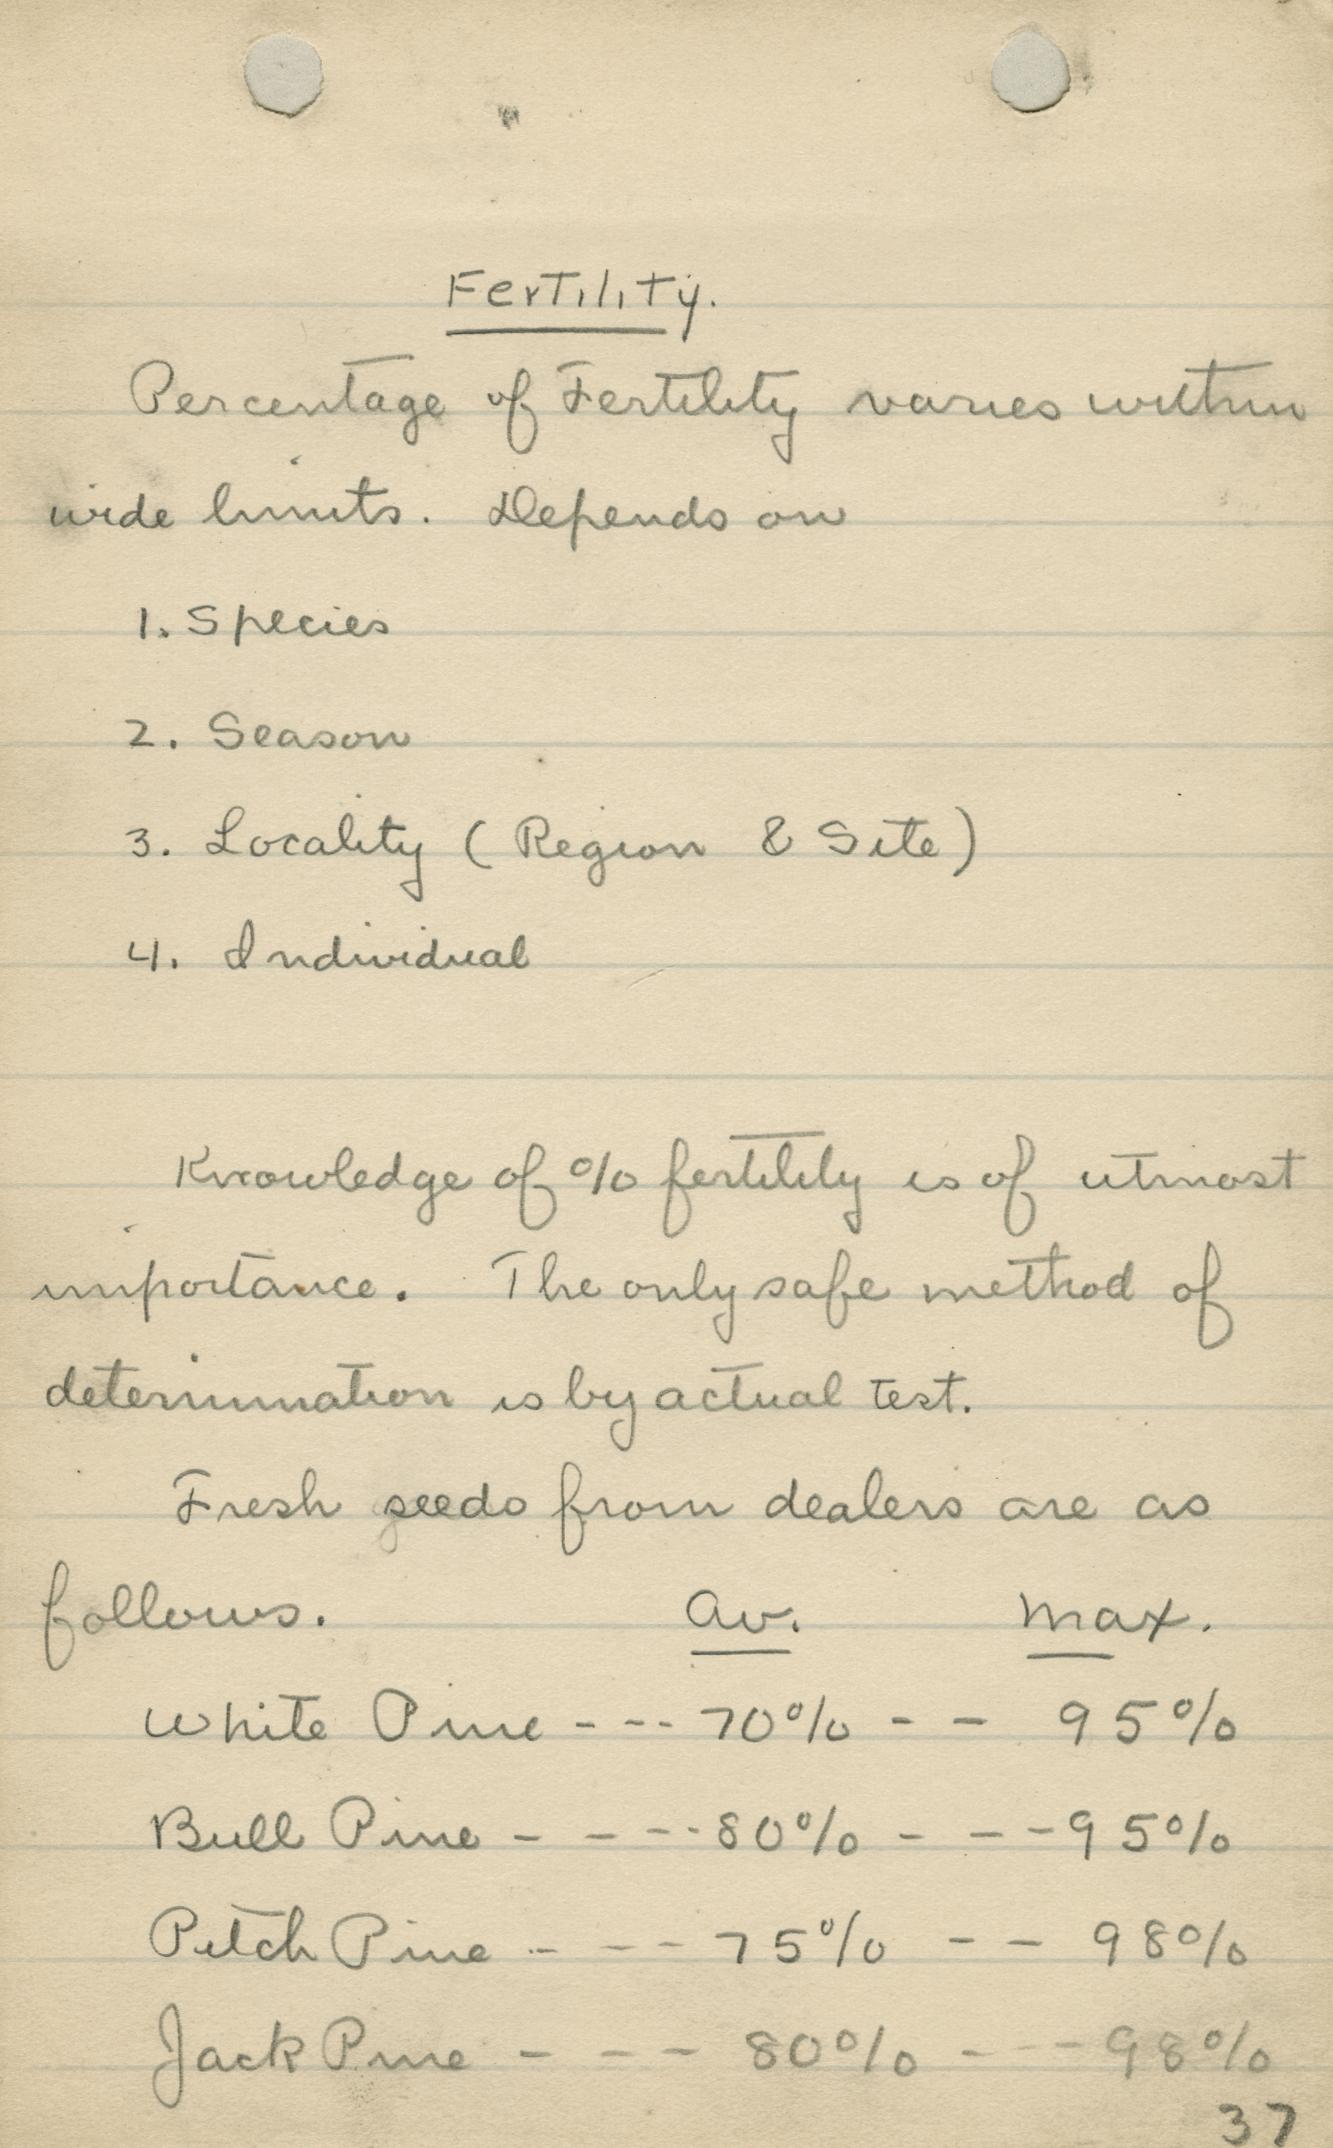 Fertility.
Percentage of Fertility varies within
wide limits. Depends on
1. Species
2. Season
3. Locality (Region & Site)
4. Individual
Knowledge of % fertility is of utmost
importance. The only safe method of
determination is by actual test.
Fresh seeds from dealers are as
follows. Av. Max.
White Pine --- 70% -- 95%
Bull Pine ---- 80% --- 95%
Pitch Pine ---- 75% -- 98%
Jack Pine --- 80% --- 98%
37